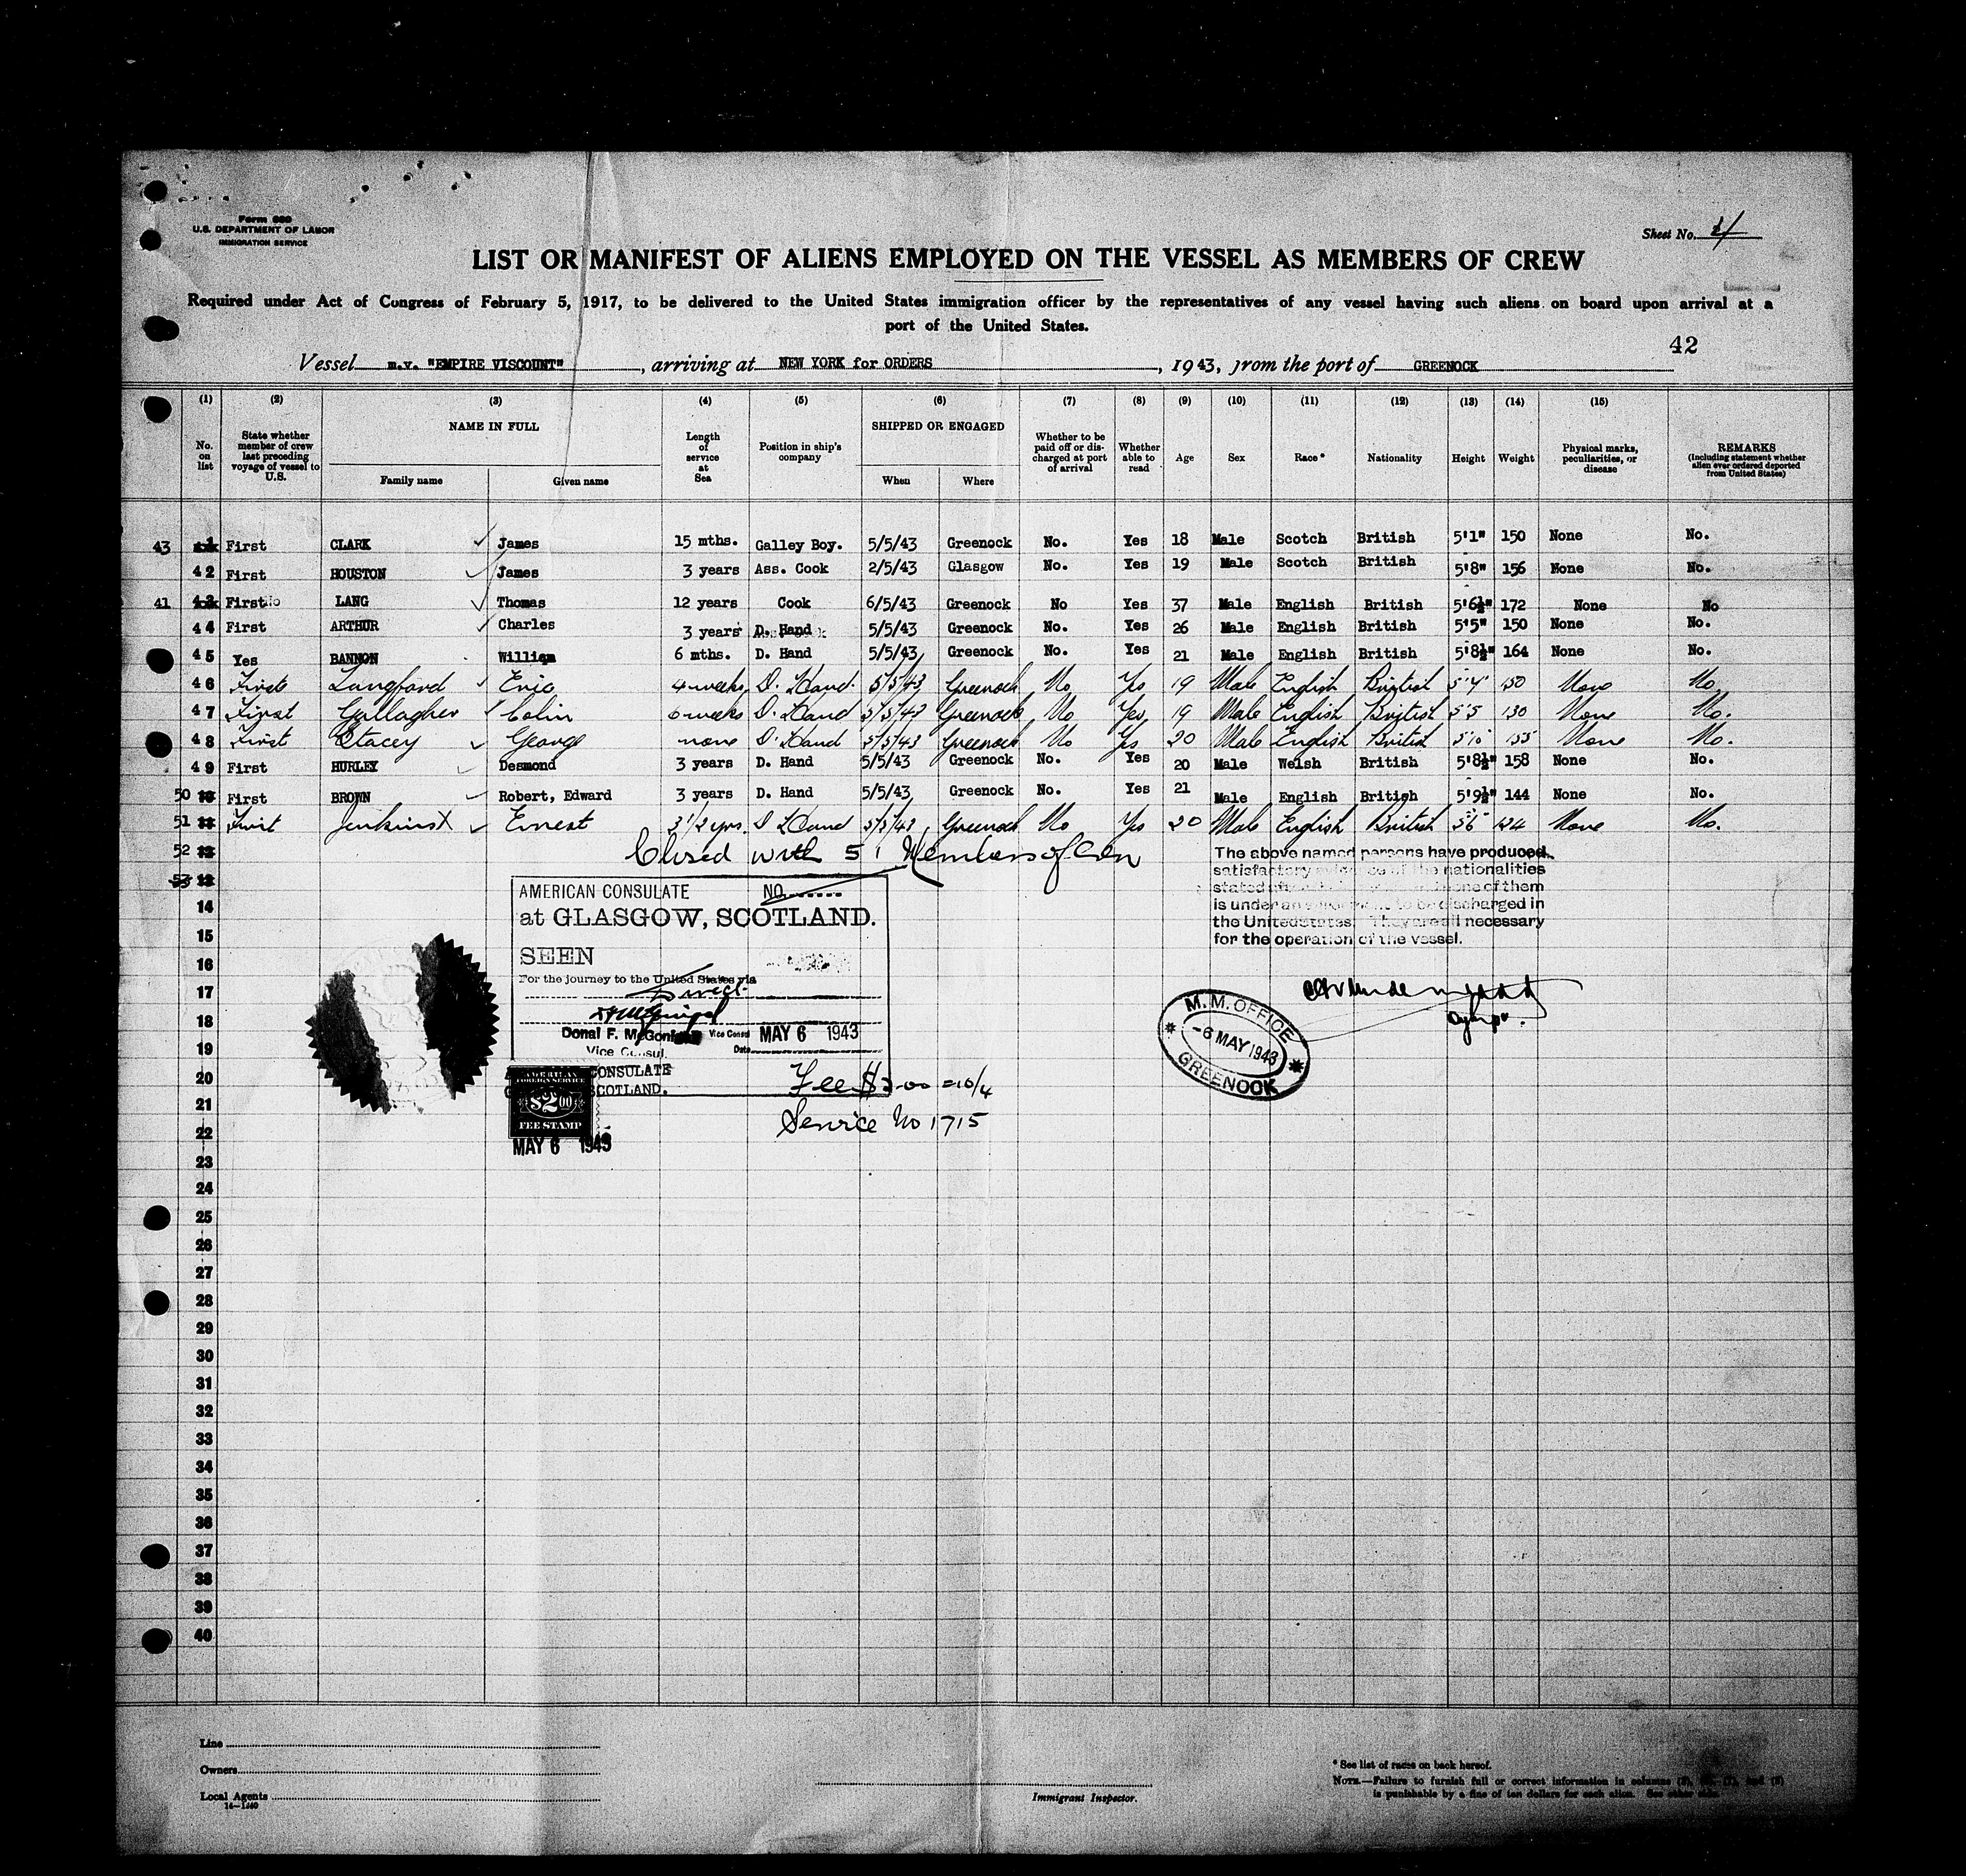 Form 680
U.S. DEPARTMENT OF LABOR
IMMIGRATION SERVICE
Sheet No. 4
LIST OR MANIFEST OF ALIENS EMPLOYED ON THE VESSEL AS MEMBERS OF CREW
Required under Act of Congress of February 5, 1917, to be delivered to the United States immigration officer by the representatives of any vessel having such aliens on board upon arrival at a
port of the United States.
42
Vessel m.v. "EMPIRE VISCOUNT", arriving at NEW YORK for ORDERS, 1943, from the port of GREENOCK
(1) (2) (3) (4) (5) (6) (7) (8) (9) (10) (11) (12) (13) (14) (15)
No. on list State whether member of crew last preceding voyage of vessel to U.S. NAME IN FULL Family name Given name Length of service at Sea Position in ship's company SHIPPED OR ENGAGED When Where Whether to be paid off or discharged at port of arrival Whether able to read Age Sex Race* Nationality Height Weight Physical marks, peculiarities, or disease REMARKS (Including statement whether alien ever ordered deported from United States)
43 First CLARK James 15 mths. Galley Boy. 5/5/43 Greenock No. Yes 18 Male Scotch British 5'1" 150 None No.
42 First HOUSTON James 3 years Ass. Cook 2/5/43 Glasgow No. Yes 19 Male Scotch British 5'8" 156 None No.
41 First LANG Thomas 12 years Cook 6/5/43 Greenock No Yes 37 Male English British 5'6½" 172 None No
44 First ARTHUR Charles 3 years D. Hand 5/5/43 Greenock No. Yes 26 Male English British 5'5" 150 None No.
45 Yes BANNON William 6 mths. D. Hand 5/5/43 Greenock No. Yes 21 Male English British 5'8½" 164 None No.
46 First Langford Eric 4 weeks D. Hand 5/5/43 Greenock No Yes 19 Male English British 5'4" 150 None No
47 First Gallagher Colin 6 weeks D. Hand 5/5/43 Greenock No Yes 19 Male English British 5'5 130 None No.
48 First Stacey George none D. Hand 5/5/43 Greenock No Yes 20 Male English British 155 None No.
49 First HURLEY Desmond 3 years D. Hand 5/5/43 Greenock No. Yes 20 Male Welsh British 5'8½" 158 None No.
50 First BROWN Robert, Edward 3 years D. Hand 5/5/43 Greenock No. Yes 21 Male English British 5'9½" 144 None No.
51 First Jenkins Ernest 3 1/2 yrs. D Hand 5/5/43 Greenock No Yes 20 Male English British 5'6" 124 None No.
52 Closed with 51 Members of Crew
53
The above named persons have produced
satisfactory evidence of the nationalities
stated none of them
is under to be discharged in
the United states. They are all necessary
for the operation of the vessel.
AMERICAN CONSULATE NO.
at GLASGOW, SCOTLAND.
SEEN
For the journey to the United States via
Direct
Donal F. McGonigal Vice Consul MAY 6 1943
Vice Consul. Date
CONSULATE
SCOTLAND.
AMERICAN
FOREIGN SERVICE
$2.00
FEE STAMP
MAY 6 1943
Fee $2.00 = 10/4
Service No 1715
M.M. OFFICE
-6 MAY 1943
GREENOCK
14
15
16
17
18
19
20
21
22
23
24
25
26
27
28
29
30
31
32
33
34
35
36
37
38
39
40
Line
Owners
Local Agents
14—1240
Immigrant Inspector.
* See list of races on back hereof.
NOTE.—Failure to furnish full or correct information in columns
is punishable by a fine of ten dollars for each alien. See other side.